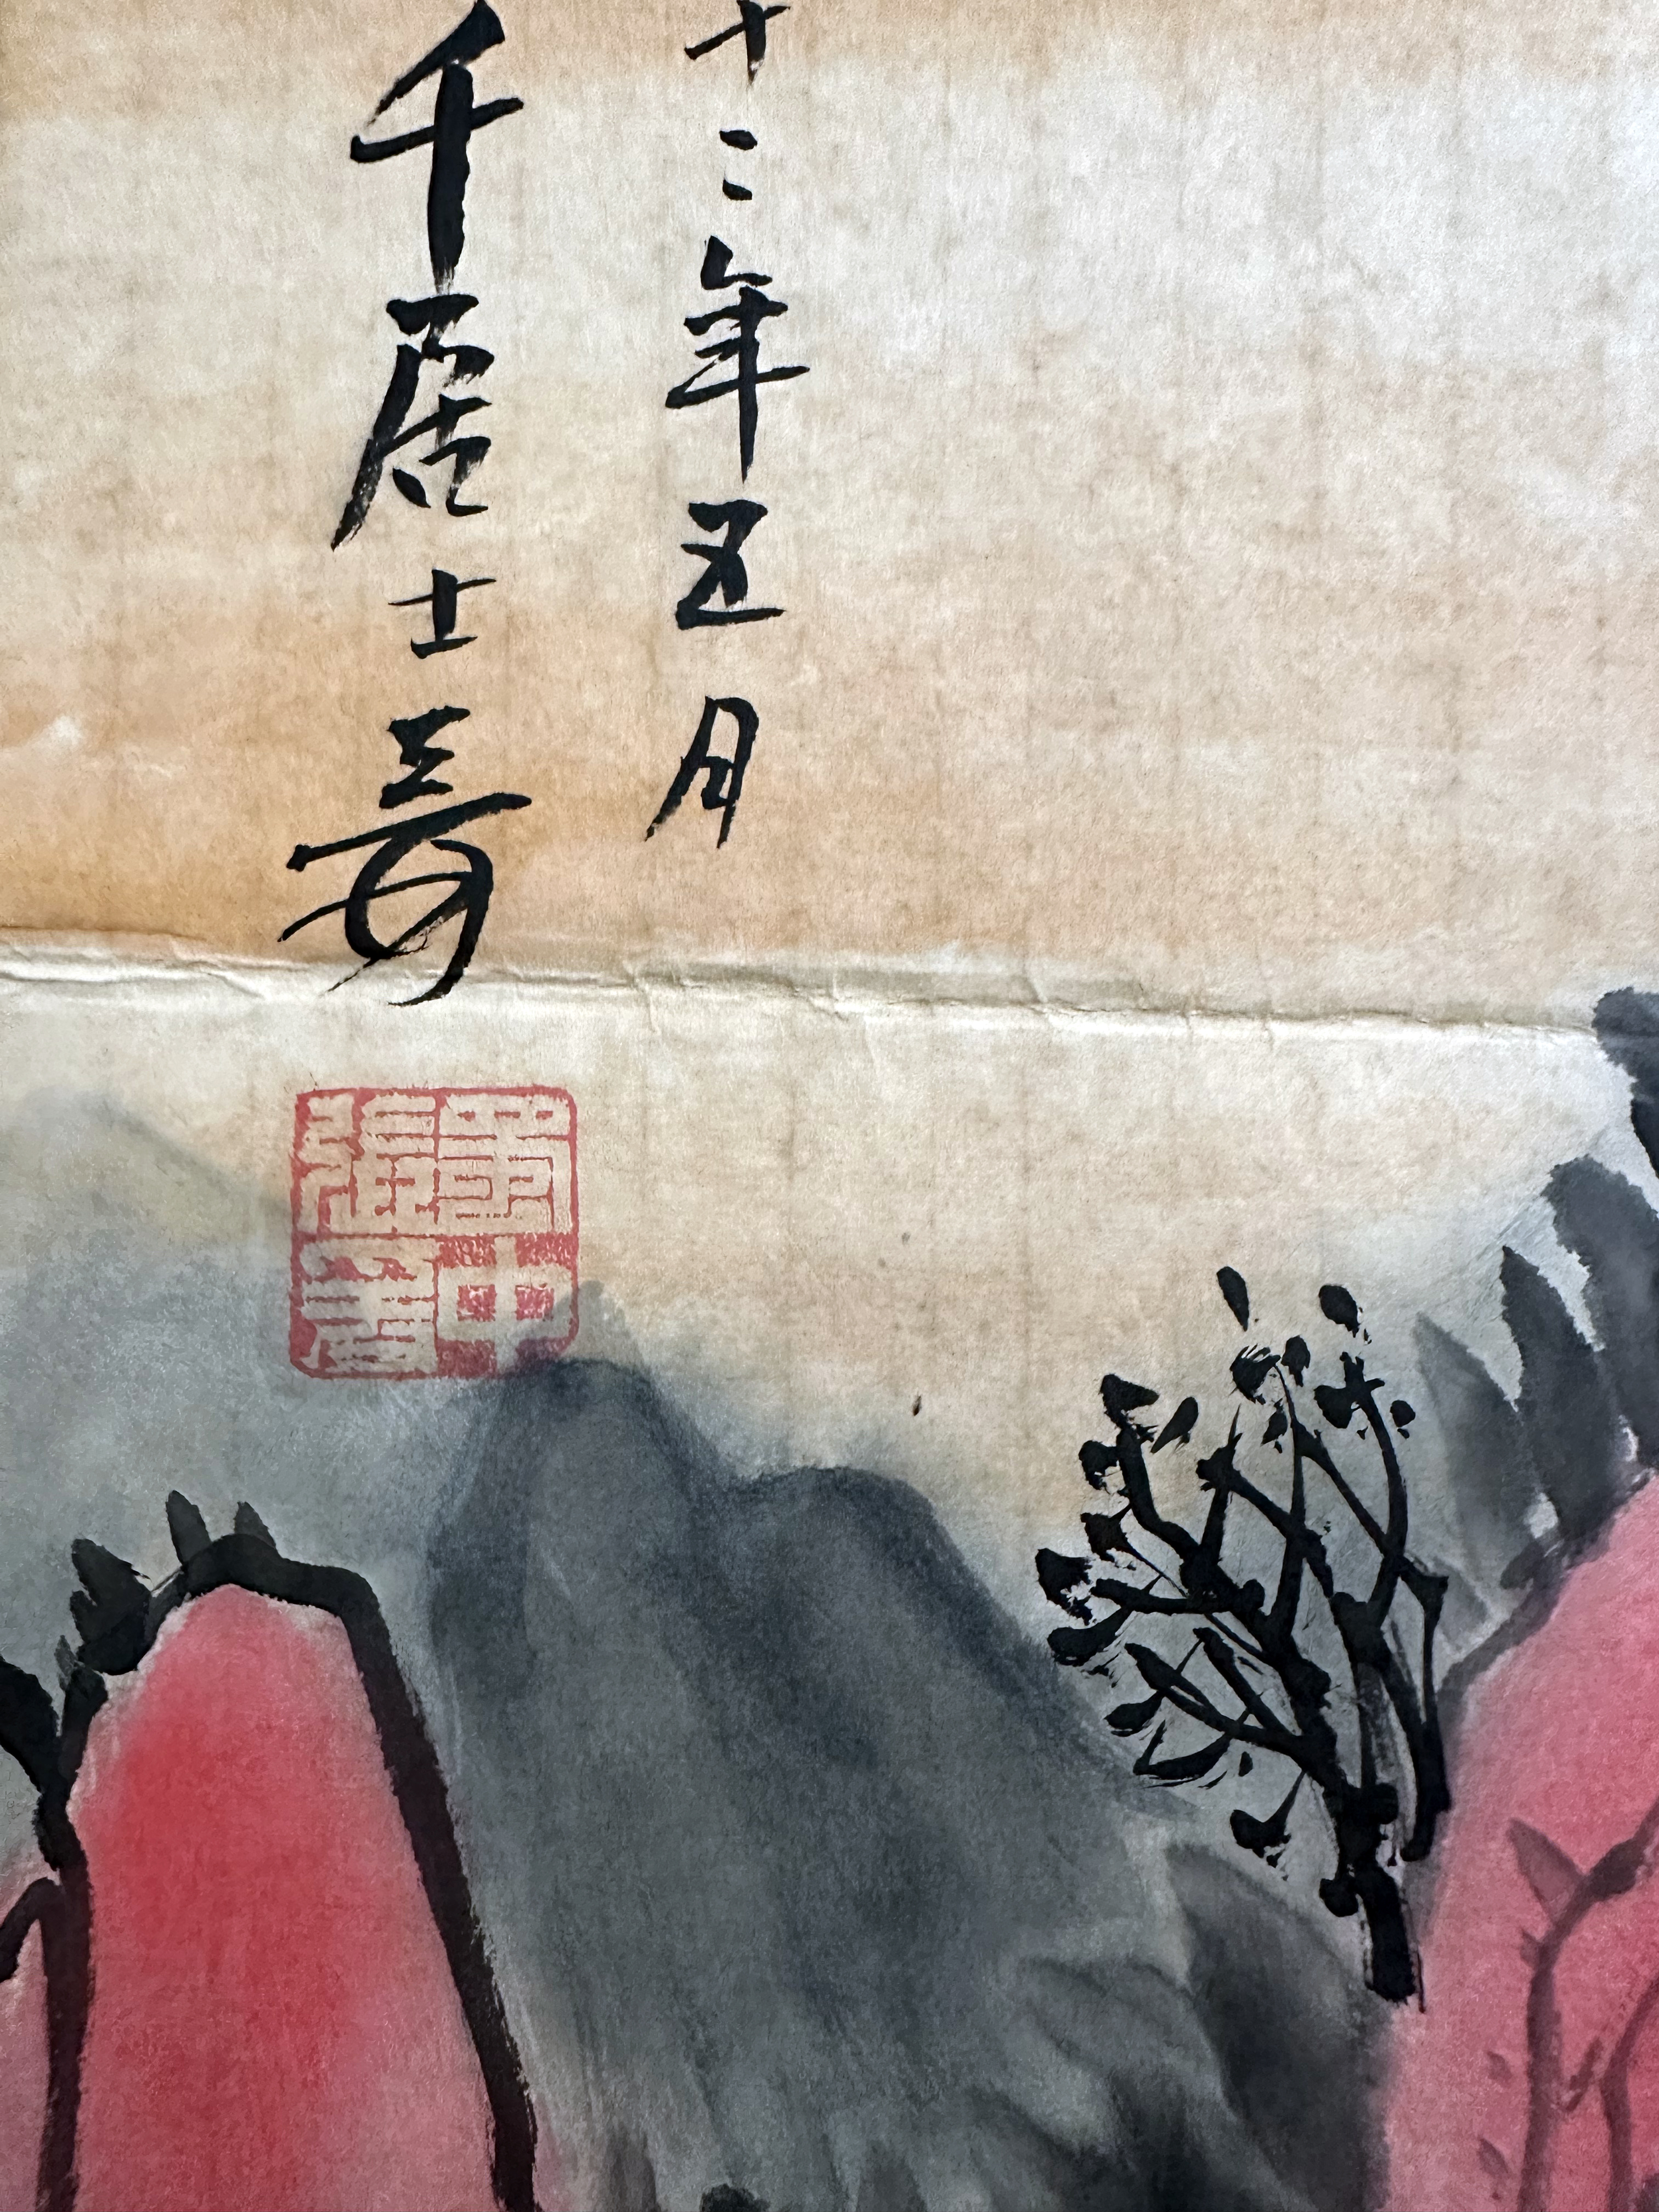 十二年五月
千居士爰
中
張爰